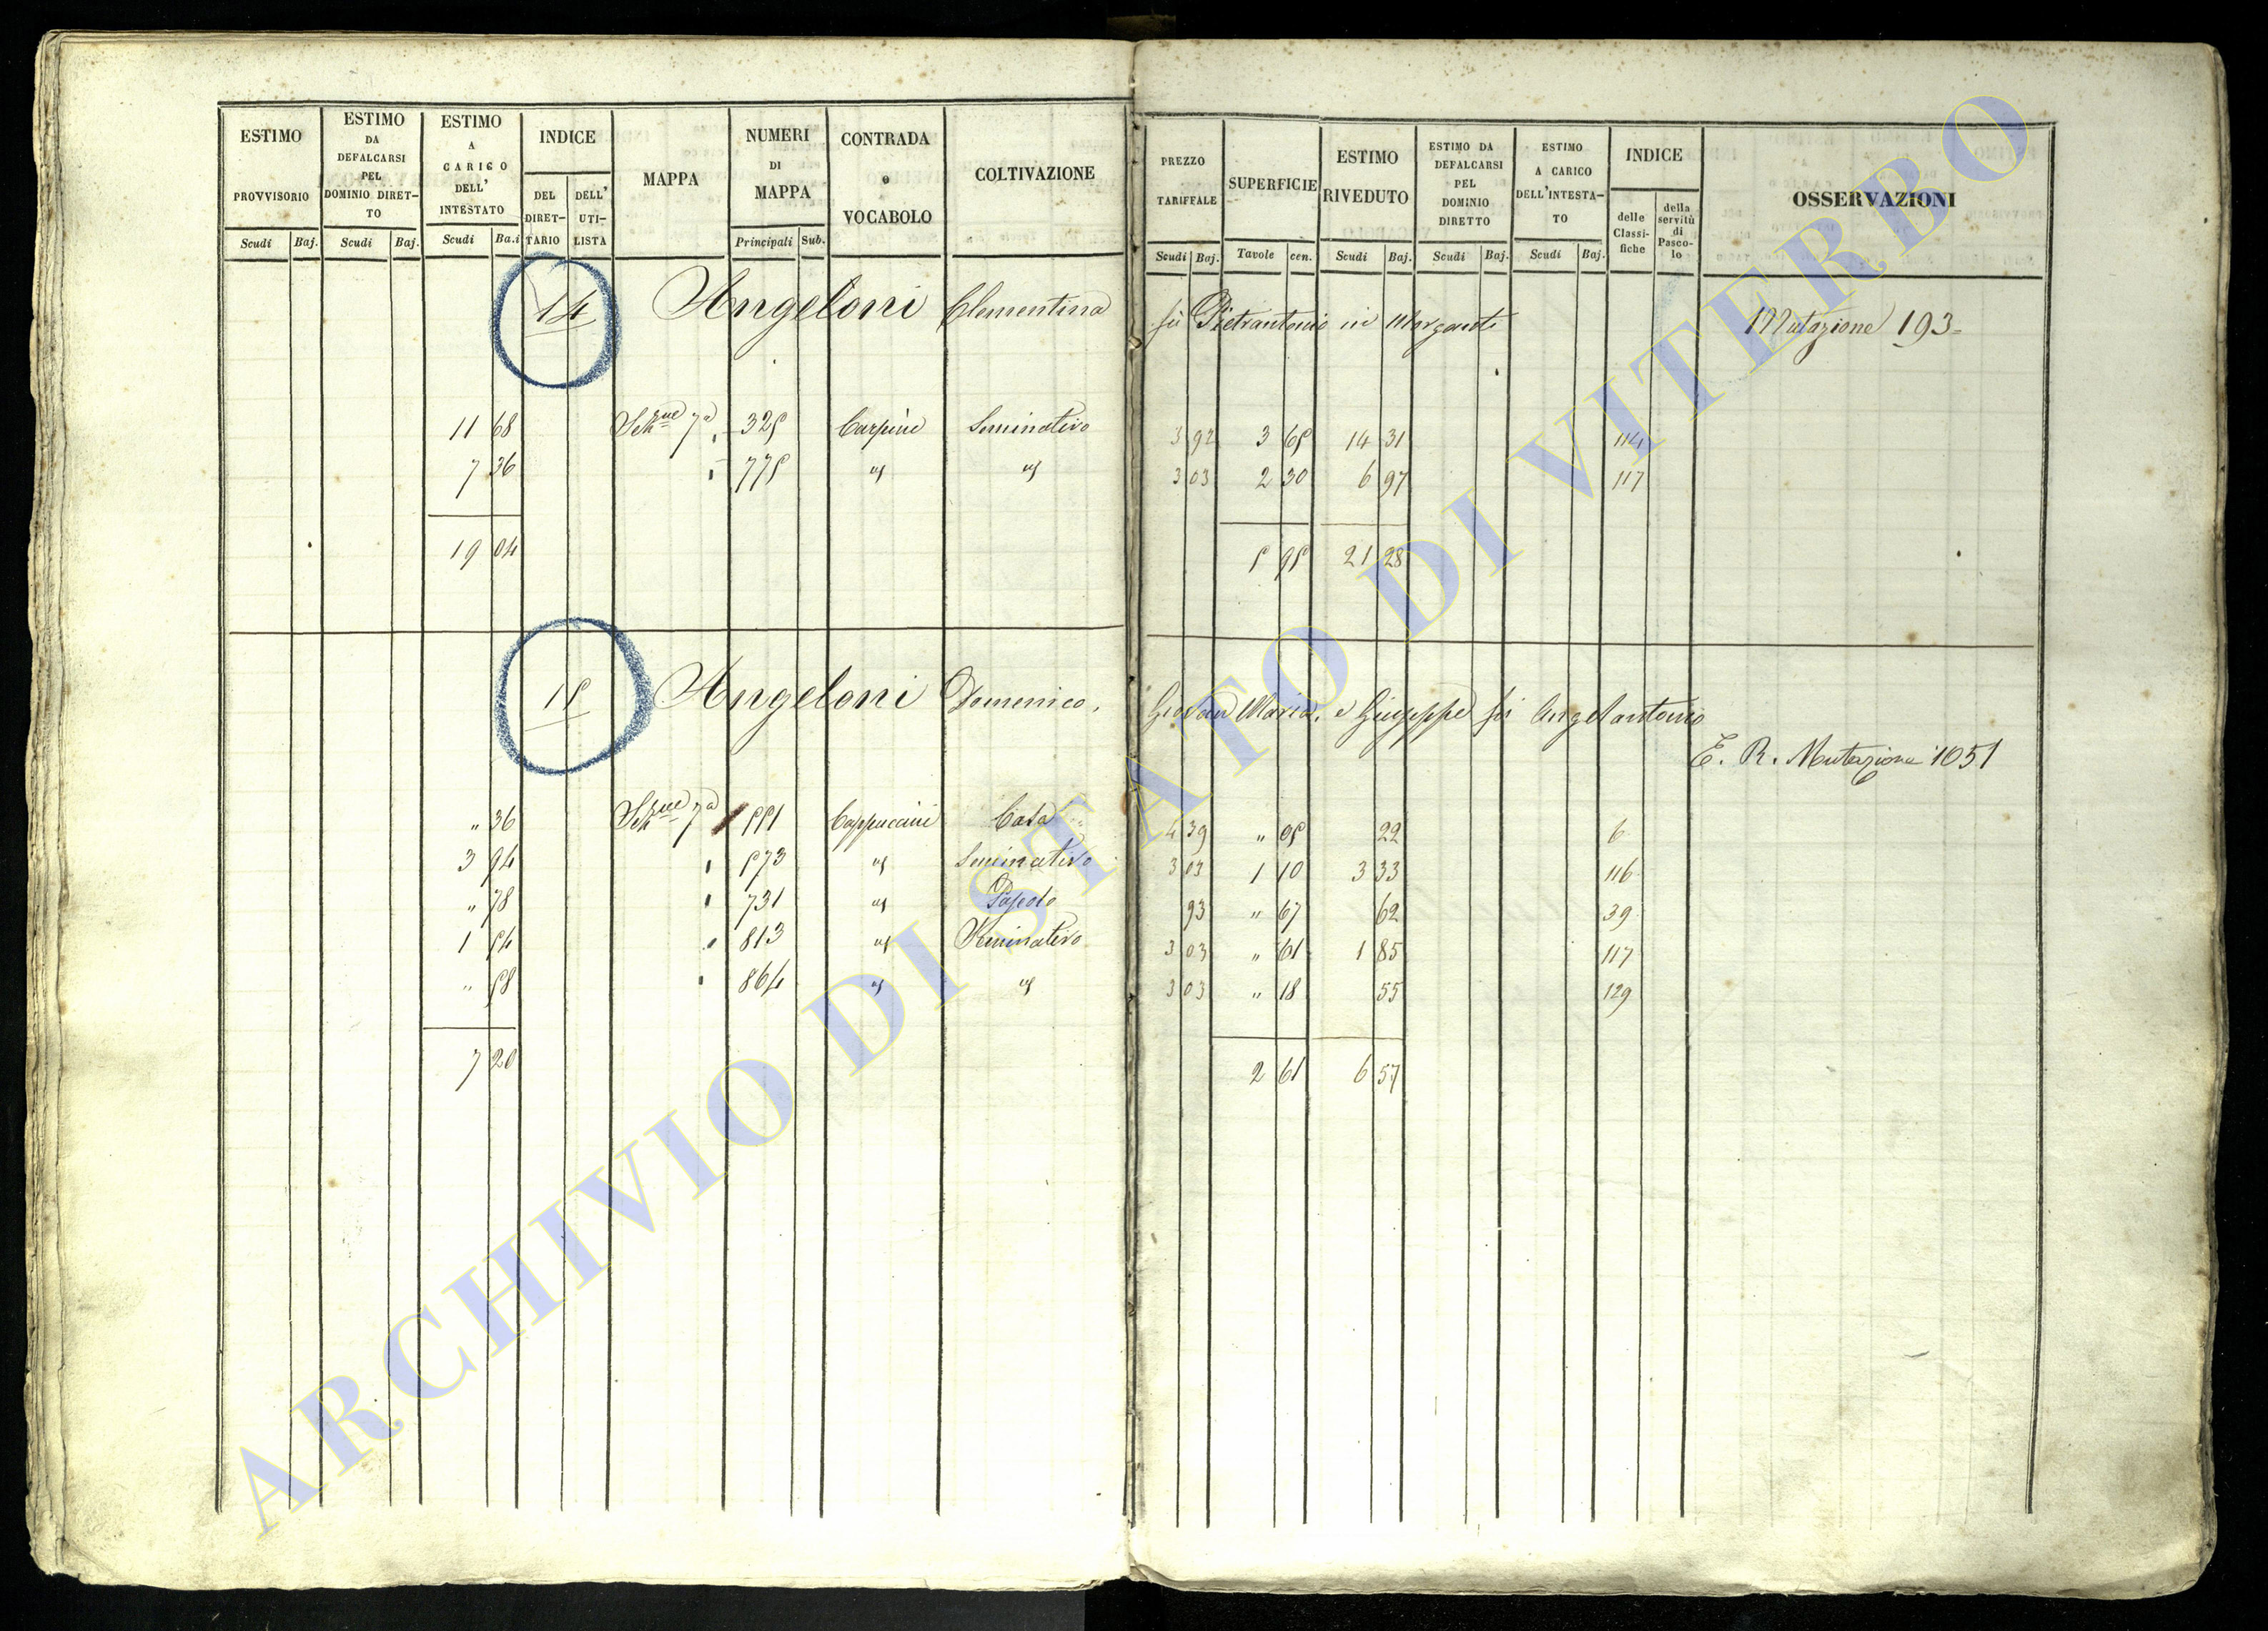 ESTIMO PROVVISORIO
ESTIMO DA DEFALCARSI PEL DOMINIO DIRET-TO
ESTIMO A CARICO DELL' INTESTATO
INDICE
DEL DIRET-TARIO
DELL' UTI-LISTA
MAPPA
NUMERI DI MAPPA
CONTRADA o VOCABOLO
COLTIVAZIONE
PREZZO TARIFFALE
SUPERFICIE
ESTIMO RIVEDUTO
ESTIMO DA DEFALCARSI PEL DOMINIO DIRETTO
ESTIMO A CARICO DELL'INTESTA-TO
INDICE
delle Classi-fiche
della servitù di Pasco-lo
OSSERVAZIONI
Scudi Baj. Scudi Baj. Scudi Ba.i Principali Sub. Scudi Baj. Tavole cen. Scudi Baj. Scudi Baj. Scudi Baj.
14 Angeloni Clementina fù Pietrantonio in Morganti Mutazione 193=
11 68 Sez.ne 7a 325 Carpine Seminativo 3 92 3 65 14 31 114
7 36 " 775 " " 3 03 2 30 6 97 117
19 04 5 95 21 28
15 Angeloni Domenico, Giovan Maria, e Giuseppe fù Angelantonio
E. R. Mutazione 1051
" 36 Sez.ne 7a 551 Cappuccini Casa 4 39 " 05 22 6
3 94 " 573 " Seminativo 3 03 1 10 3 33 116
" 78 " 731 " Pascolo 93 " 67 62 39
1 54 " 813 " Seminativo 3 03 " 61 1 85 117
" 58 " 864 " " 3 03 " 18 55 129
7 20 2 61 6 57
ARCHIVIO DI STATO DI VITERBO